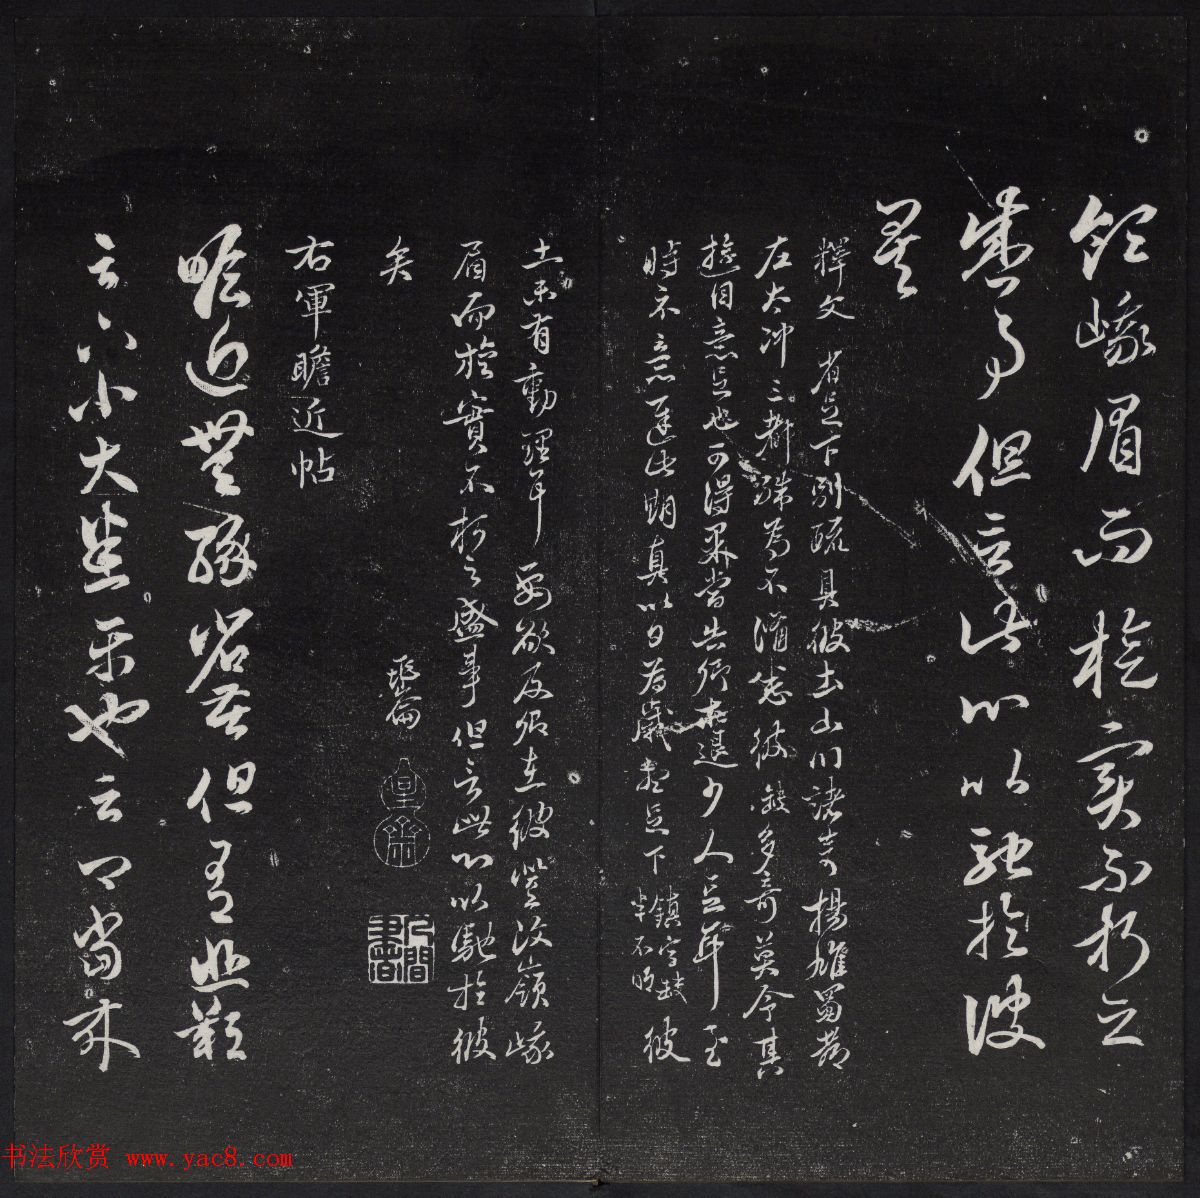 領峨眉而旋實不朽之
盛事但言此心以馳於彼
矣
釋文 省足下別疏具彼土山川諸奇揚雄蜀都
左太沖三都殊為不備悉彼故多奇益令其
遊目意足也可得果當告卿求迎少人足耳至
時示意遲此期真以日為歲想足下鎮字缺半不明彼
土未有動理耳要欲及卿在彼登汶嶺峨
眉而旋實不朽之盛事但言此心以馳於彼
矣
臨
皇帝
右軍瞻近帖
瞻近無緣省苦但有悲歎
云卿當來
书法欣赏 www.yac8.com